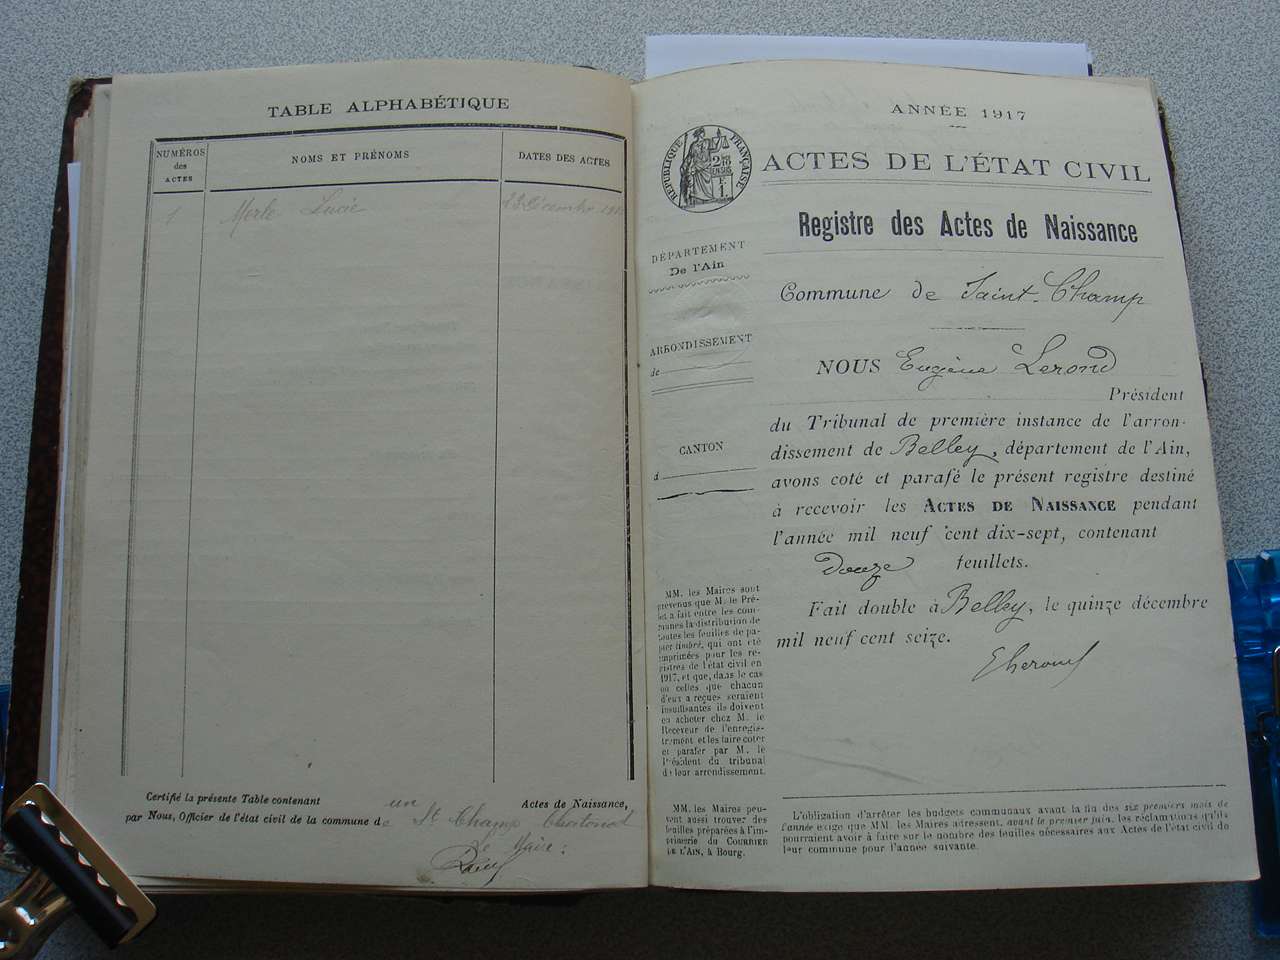 TABLE ALPHABÉTIQUE
NUMÉROS
des
ACTES
NOMS ET PRÉNOMS
DATES DES ACTES
1 Merle Lucie
Certifié la présente Table contenant un Actes de Naissance,
par Nous, Officier de l'état civil de la commune de St Champ Chatonod
Le Maire:
ANNÉE 1917
RÉPUBLIQUE FRANÇAISE
ACTES DE L'ÉTAT CIVIL
Registre des Actes de Naissance
DÉPARTEMENT
De l'Ain
ARRONDISSEMENT
de
CANTON
d
Commune de Saint-Champ
NOUS Eugène Lerond
Président
du Tribunal de première instance de l'arron-
dissement de Belley, département de l'Ain,
avons coté et parafé le présent registre destiné
à recevoir les ACTES DE NAISSANCE pendant
l'année mil neuf cent dix-sept, contenant
Douze feuillets.
Fait double à Belley, le quinze décembre
mil neuf cent seize.
MM. les Maires sont
prévenus que M. le Pré-
fet a fait entre les com-
munes la distribution de
toutes les feuilles de pa-
pier timbré, qui ont été
imprimées pour les re-
gistres de l'état civil en
1917, et que, dans le cas
où celles que chacun
d'eux a reçues seraient
insuffisantes ils doivent
en acheter chez M. le
Receveur de l'enregis-
trement et les faire coter
et parafer par M. le
Président du tribunal
de leur arrondissement.
MM. les Maires peu-
vent aussi trouver des
feuilles préparées à l'im-
primerie du COURRIER
DE L'AIN, à Bourg.
L'obligation d'arrêter les budgets communaux avant la fin des six premiers mois de
l'année exige que MM. les Maires adressent, avant le premier juin, les réclamations qu'ils
pourraient avoir à faire sur le nombre des feuilles nécessaires aux Actes de l'état civil de
leur commune pour l'année suivante.